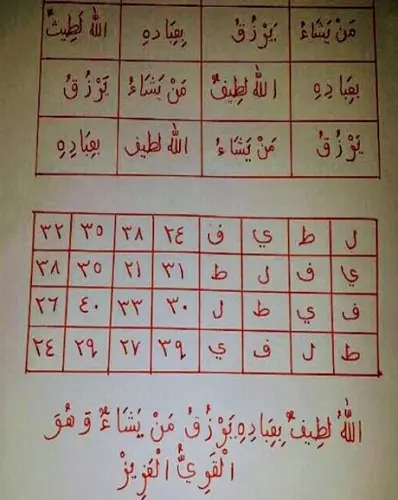 مَنْ يَشَاءُ يَرْزُقُ بِعِبَادِهِ اللهُ لَطِيفٌ
بِعِبَادِهِ اللهُ لَطِيفٌ مَنْ يَشَاءُ يَرْزُقُ
يَرْزُقُ مَنْ يَشَاءُ اللهُ لطيف بِعِبَادِهِ
ل ط ي ف ٢٤ ٣٨ ٣٥ ٣٢
ي ف ل ط ٣١ ٢١ ٣٥ ٣٨
ف ي ط ل ٣٠ ٣٣ ٤٠ ٢٦
ط ل ف ي ٣٩ ٢٧ ٢٩ ٢٤
اللهُ لَطِيفٌ بِعِبَادِهِ يَرْزُقُ مَنْ يَشَاءُ وَهُوَ
الْقَوِيُّ الْعَزِيزْ